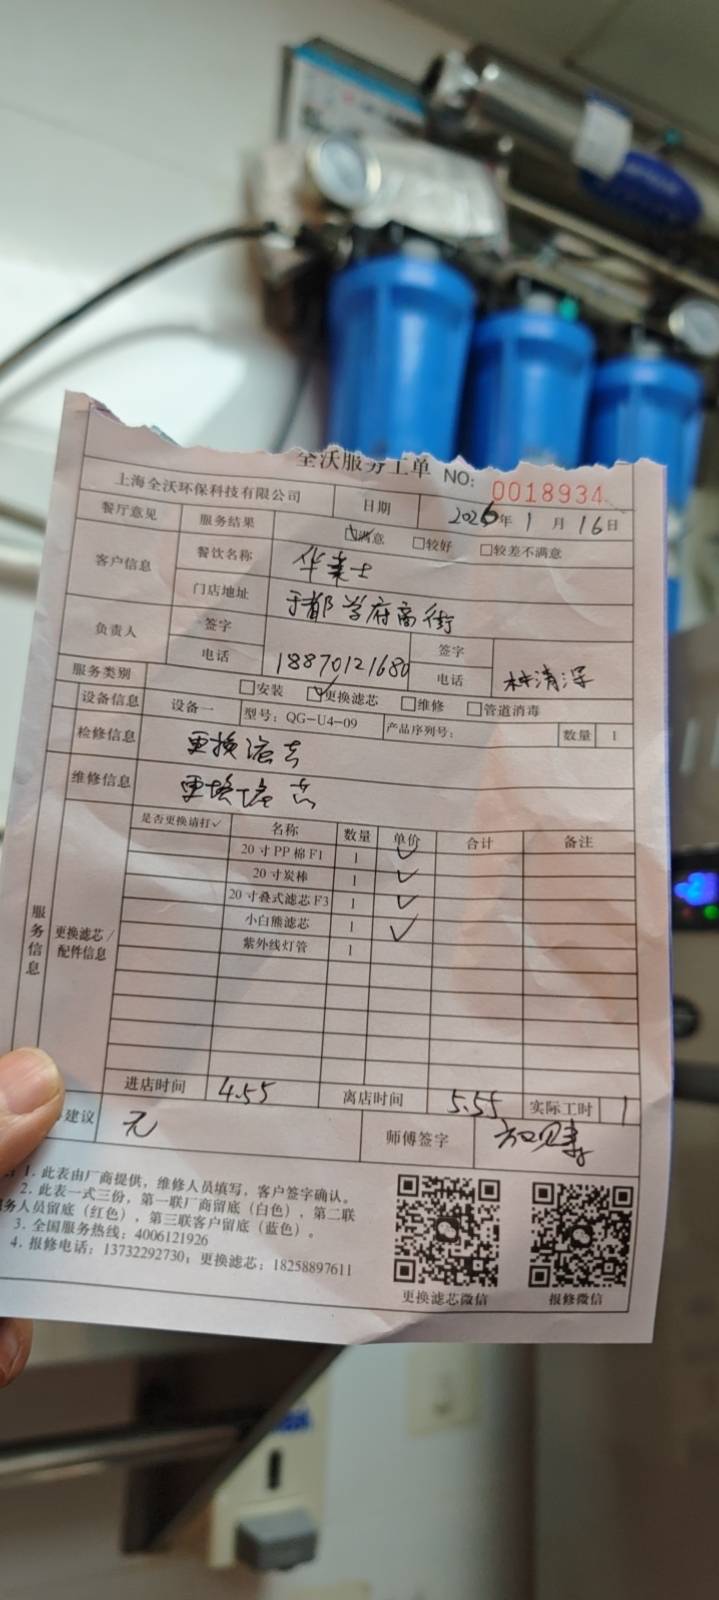 全沃服务工单 NO: 0018934
上海全沃环保科技有限公司 日期 2026年1月16日
餐厅意见 服务结果 ☑满意 □较好 □较差不满意
客户信息 餐饮名称 华莱士
门店地址 于都学府商街
负责人 签字 签字
电话 18870121680 电话 林清深
服务类别 □安装 ☑更换滤芯 □维修 □管道消毒
设备信息 设备一 型号：QG-U4-09 产品序列号： 数量 1
检修信息 更换滤芯
维修信息 更换滤芯
服务信息 更换滤芯/配件信息
是否更换请打✓ 名称 数量 单价 合计 备注
20寸PP棉F1 1 ✓
20寸炭棒 1 ✓
20寸叠式滤芯F3 1 ✓
小白熊滤芯 1 ✓
紫外线灯管 1
进店时间 4.55 离店时间 5.55 实际工时 1
建议 无 师傅签字
1. 此表由厂商提供，维修人员填写，客户签字确认。
2. 此表一式三份，第一联厂商留底（白色），第二联
务人员留底（红色），第三联客户留底（蓝色）。
3. 全国服务热线：4006121926
4. 报修电话：13732292730；更换滤芯：18258897611
更换滤芯微信 报修微信